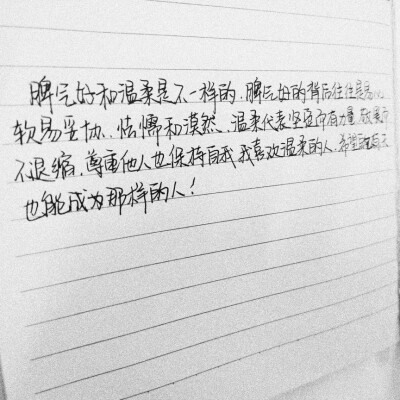 脾气好和温柔是不一样的.脾气好的背后往往是
软易妥协.怯懦和漠然.温柔代表坚定而有力量
不退缩.尊重他人也保持自我.我喜欢温柔的人.希望
也能成为那样的人!